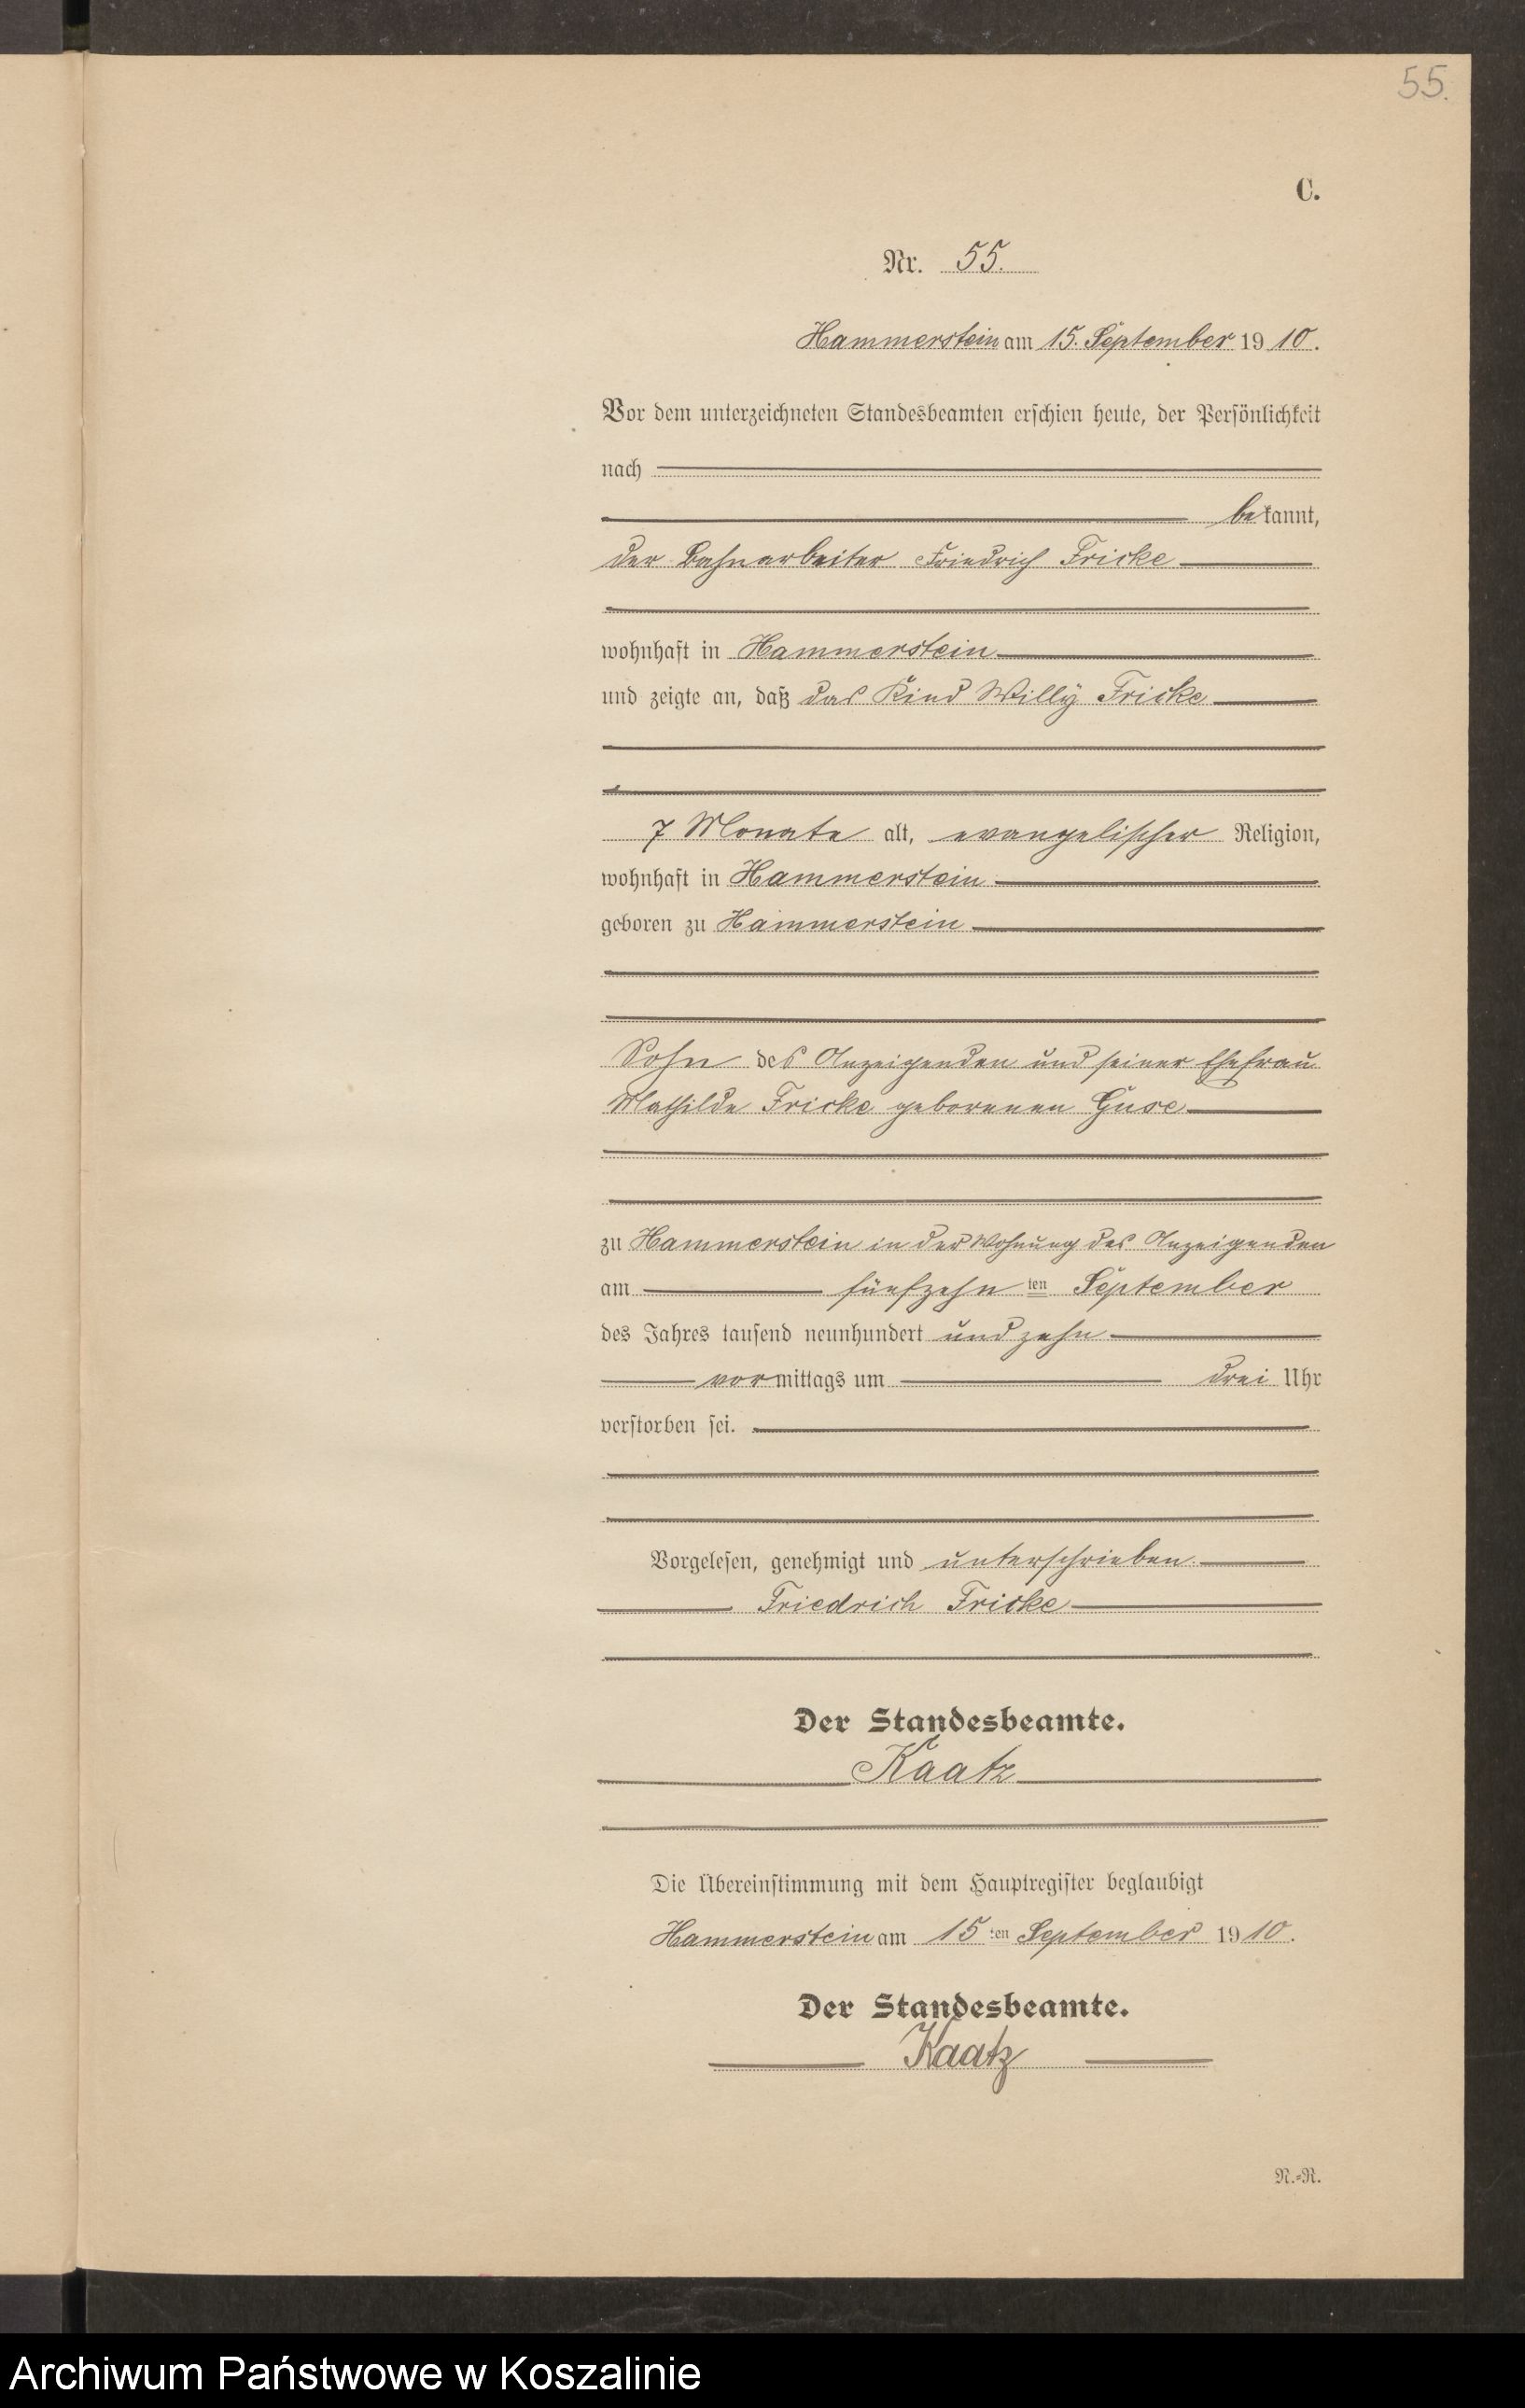 55.
C.
Nr. 55.
Hammerstein am 15. September 1910.
Vor dem unterzeichneten Standesbeamten erschien heute, der Persönlichkeit
nach
bekannt,
der Bahnarbeiter Friedrich Fricke
wohnhaft in Hammerstein
und zeigte an, daß das Kind Willy Fricke
7 Monate alt, evangelischer Religion,
wohnhaft in Hammerstein
geboren zu Hammerstein
Sohn des Anzeigenden und seiner Ehefrau
Mathilde Fricke geborenen Guse
zu Hammerstein in der Wohnung des Anzeigenden
am fünfzehnten September
des Jahres tausend neunhundert und zehn
vormittags um drei Uhr
verstorben sei.
Vorgelesen, genehmigt und unterschrieben.
Friedrich Fricke
Der Standesbeamte.
Kaatz
Die Übereinstimmung mit dem Hauptregister beglaubigt
Hammerstein am 15ten September 1910.
Der Standesbeamte.
Kaatz
N.-R.
Archiwum Państwowe w Koszalinie